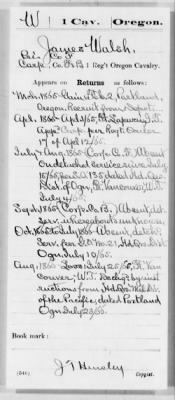 W 1 Cav. Oregon.
James Walsh,
Pvt. Co. F
Corp., Co. F & B, 1 Reg't Oregon Cavalry.
Appears on Returns as follows:
Mch. 1865 Gain, Portland,
Oregon, Recruit from Depot.
Apl. 1865 Ft. Lapwai, I.T.
App'd Corp. per Reg'tl Order
17 of Apl. 12/65.
July 1865 Corp. Co. F, Absent
On detached service since July
10/65, per S.O. 135 dated Hd. Qrs.
Dist. of Ogn. Ft. Vancouver, W.T.
July 4/65.
Sept. 1865 (Corp. Co. B.) Absent, det.
serv., whereabouts unknown.
Oct. 1865 to July 1866 Absent, detch'd
Serv. per S.O. No. 21, Hd. Qrs. Dist.
Ogn. July 10/65.
Aug. 1866 Loss July 25/66, Ft. Van
couver, W.T. by inst
ructions from Hd. Qrs. Mil. Dist.
of the Pacific, dated Portland
Ogn. July 23/66.
Book mark:
(546) Copyist.